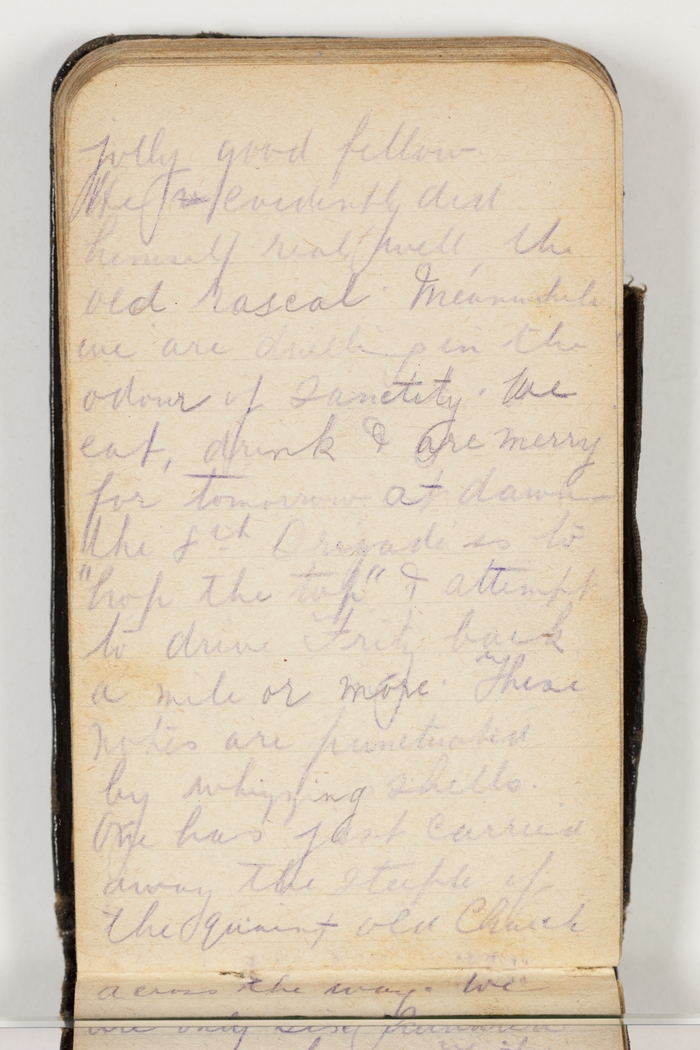 jolly good fellow.
He evidently did
himself real well, the
old rascal. Meanwhile
we are dwelling in the
odour of Sanctity. We
eat, drink & are merry
for tomorrow at dawn
the 8th Brigade is to
"hop the top" & attempt
to drive Fritz back
a mile or more. These
notes are punctuated
by whizzing shells.
One has just carried
away the steeple of
the quaint old Church
across the way. We
are only